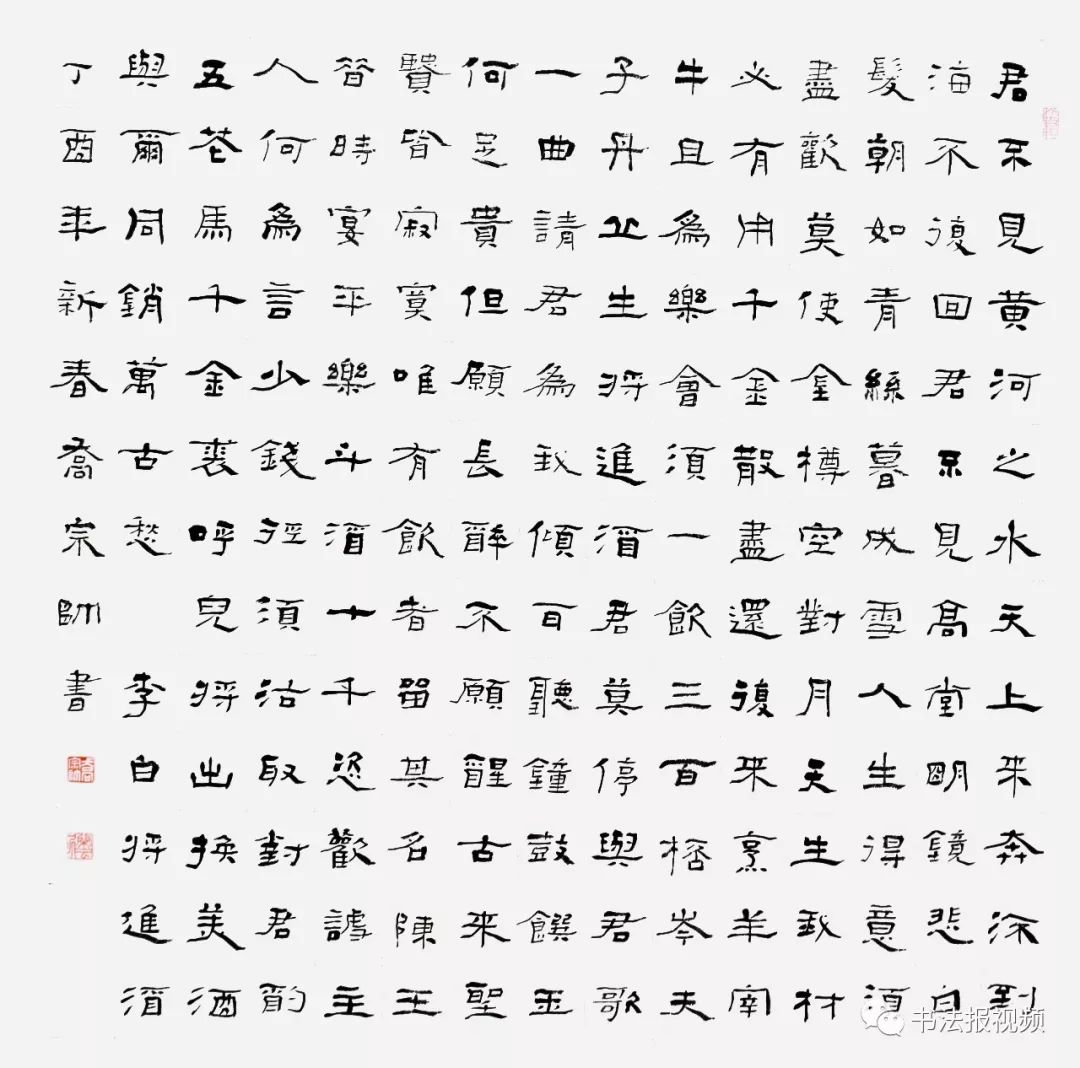 君不見黄河之水天上来奔流到
海不復回君不見高堂明鏡悲白
髮朝如青絲暮成雪人生得意須
盡歡莫使金樽空對月天生我材
必有用千金散盡還復来烹羊宰
牛且為樂會須一飲三百杯岑夫
子丹丘生将進酒君莫停與君歌
一曲請君為我傾耳聽鐘鼓饌玉
何足貴但願長醉不願醒古来聖
賢皆寂寞唯有飲者留其名陳王
昔時宴平樂斗酒十千恣歡謔主
人何為言少錢徑須沽取對君酌
五花馬千金裘呼兒将出换美酒
與爾同銷萬古愁 李白将進酒
丁酉年新春喬宗帥書
书法报视频